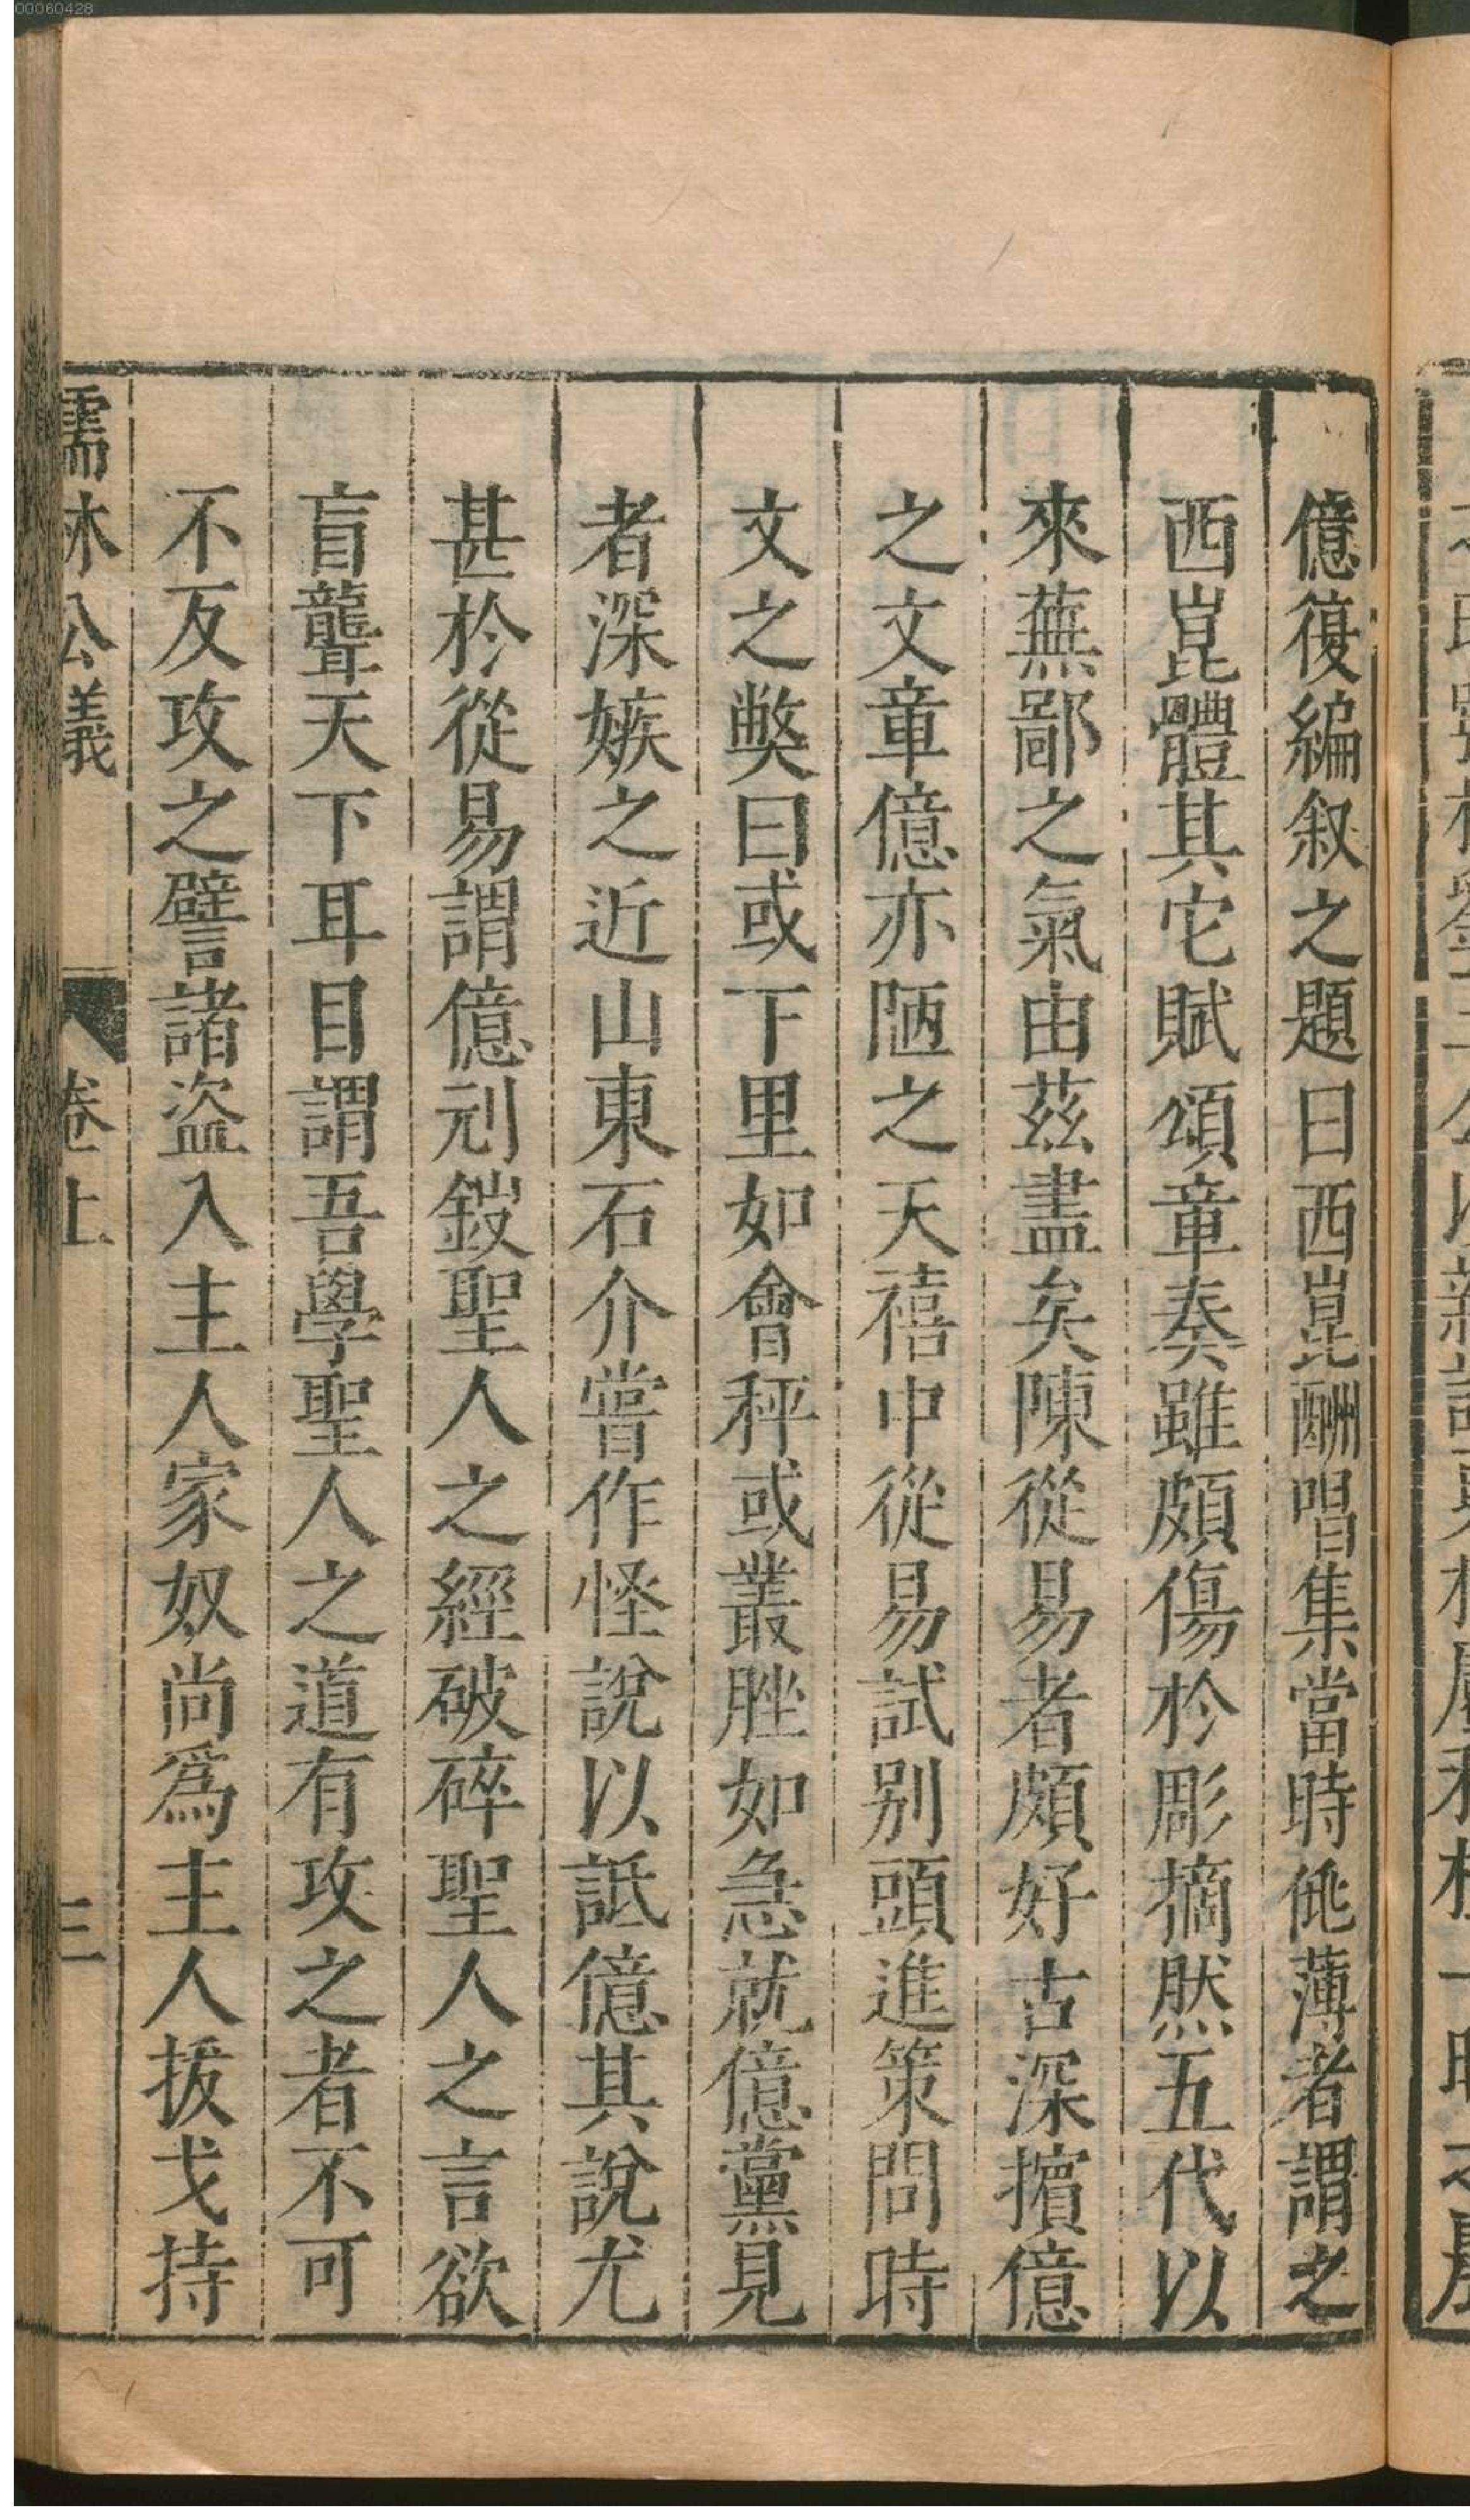 00060428
億復編叙之題曰西崑酬唱集當時佻薄者謂之
西崑體其它賦頌章奏雖頗傷於彫摘然五代以
來蕪鄙之氣由茲盡矣陳從易者頗好古深擯億
之文章億亦陋之天禧中從易試別頭進策問時
文之獘曰或下里如會稡或叢脞如急就億黨見
者深嫉之近山東石介嘗作怪說以詆億其說尤
甚於從易謂億刓鎪聖人之經破碎聖人之言欲
盲聾天下耳目謂吾學聖人之道有攻之者不可
不反攻之譬諸盜入主人家奴尚爲主人拔戈持
儒林公議 卷上 三